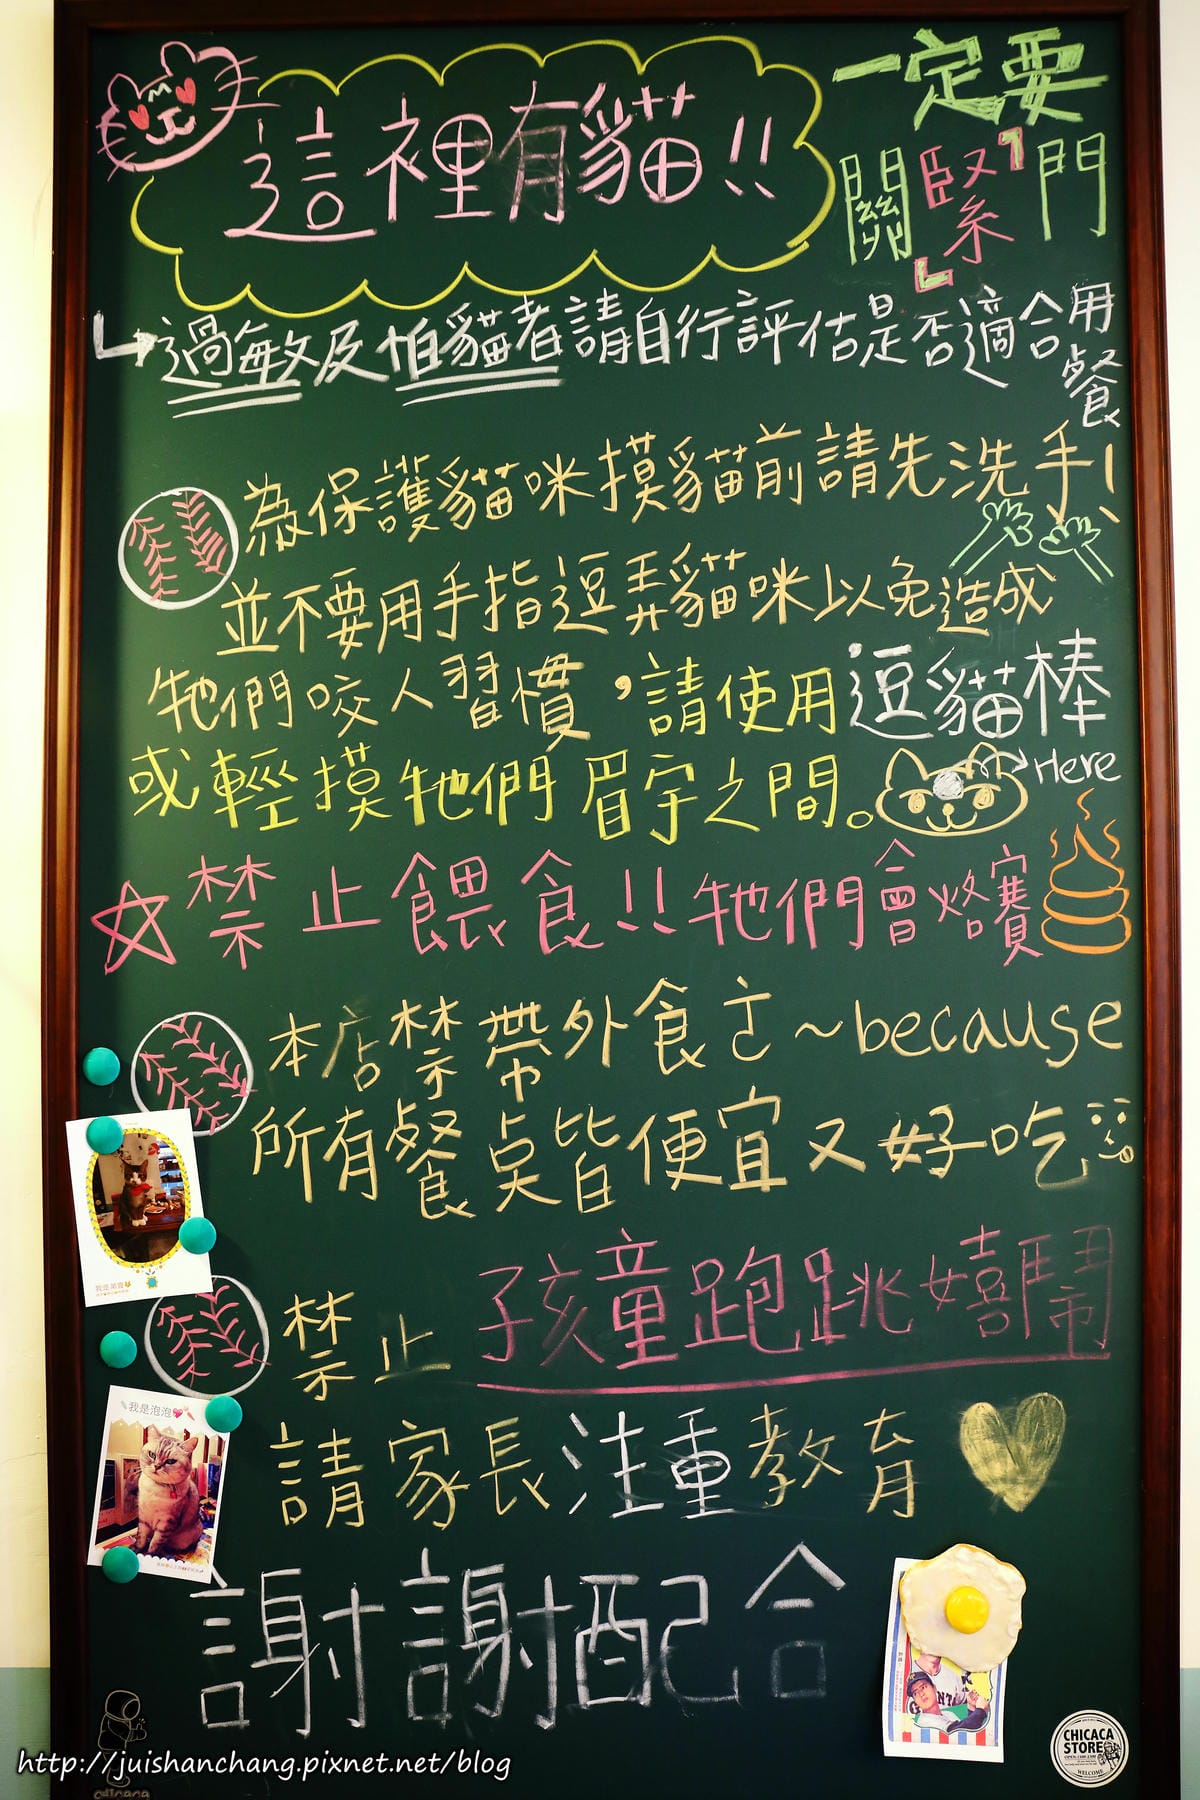 這裡有貓!!
一定要
關「緊」門
過敏及怕貓者請自行評估是否適合用
餐
為保護貓咪摸貓前請先洗手!
並不要用手指逗弄貓咪以免造成
牠們咬人習慣,請使用逗貓棒
或輕摸牠們眉宇之間。
Here
禁止餵食!!牠們會烙賽
本店禁帶外食ㄛ~because
所有餐桌皆便宜又好吃
禁止孩童跑跳嬉鬧
請家長注重教育
謝謝配合
我是泡泡
CHICACA
STORE
WELCOME
http://juishanchang.pixnet.net/blog